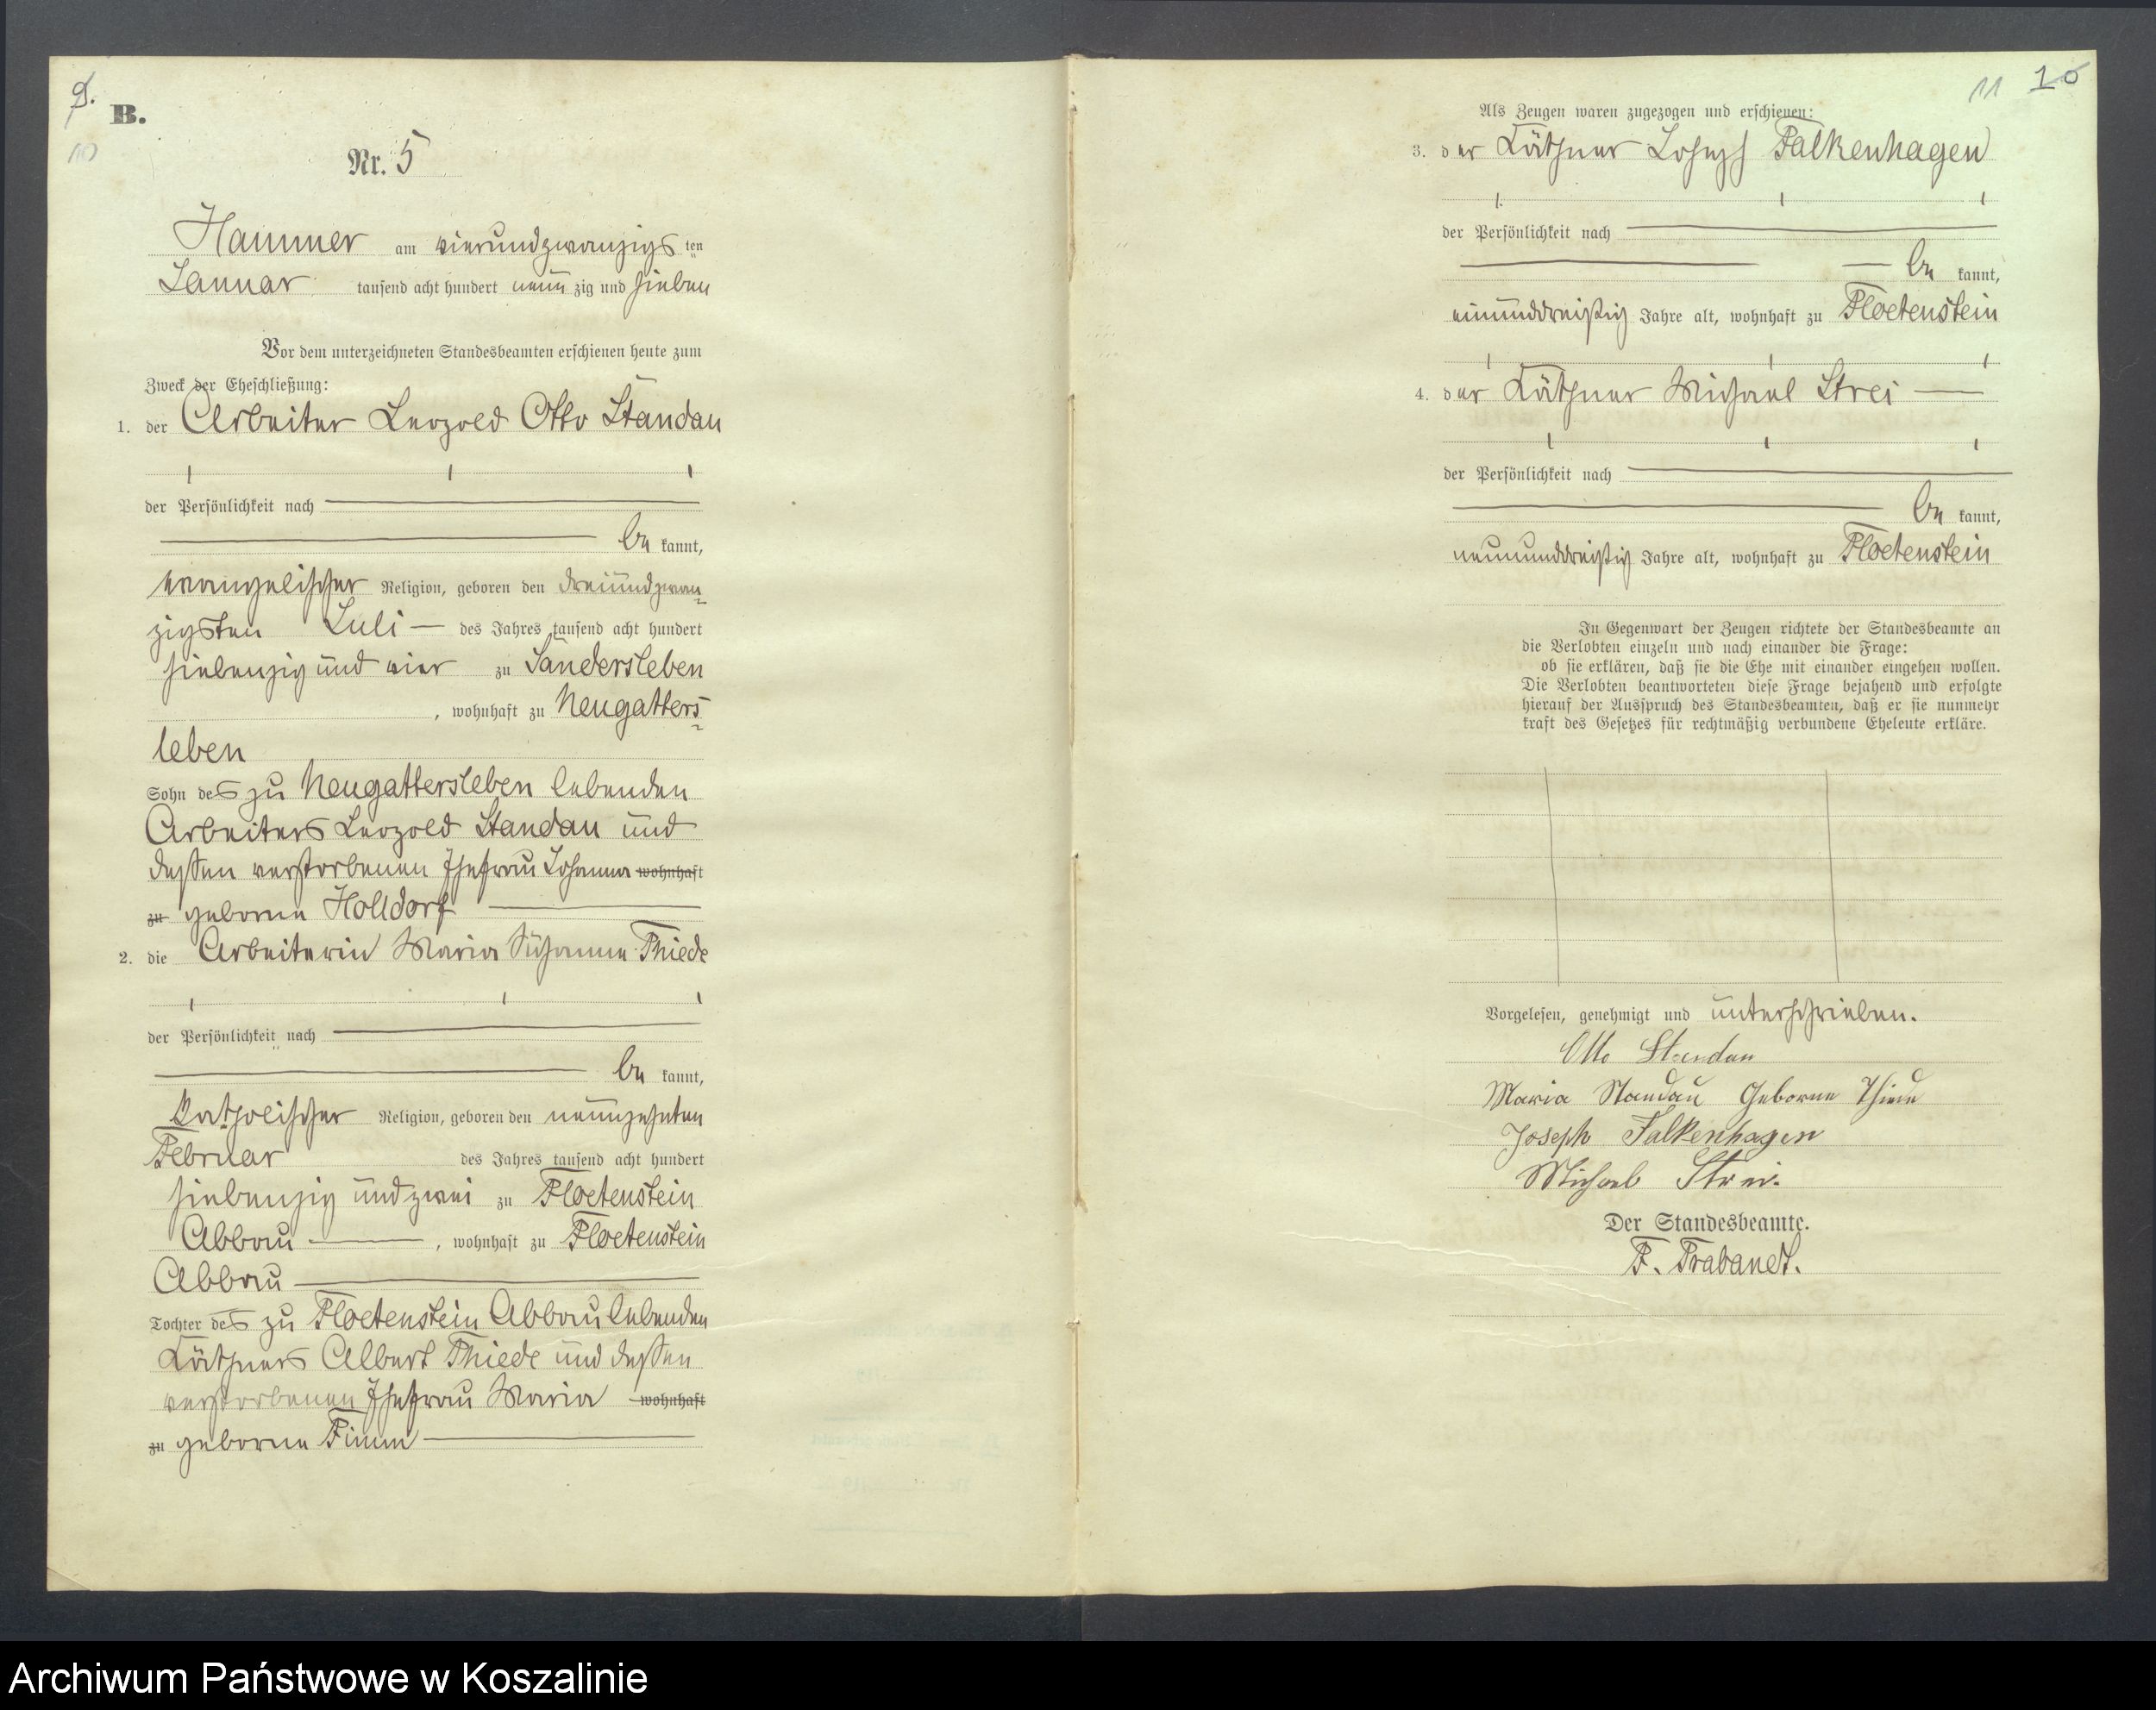 9.
B.
10
Nr. 5
Hammer am vierundzwanzigs ten
Januar tausend acht hundert neun zig und sieben
Vor dem unterzeichneten Standesbeamten erschienen heute zum
Zweck der Eheschließung:
1. der Arbeiter Leopold Otto Standau
der Persönlichkeit nach
be kannt,
evangelischer Religion, geboren den dreiundzwan-
zigsten Juli des Jahres tausend acht hundert
siebenzig und vier zu Sandersleben
, wohnhaft zu Neugatters-
leben
Sohn des zu Neugattersleben lebenden
Arbeiters Leopold Standau und
dessen verstorbenen Ehefrau Johanna wohnhaft
zu geborne Holldorf
2. die Arbeiterin Maria Susanna Thiede
der Persönlichkeit nach
be kannt,
katholischer Religion, geboren den neunzehnten
Februar des Jahres tausend acht hundert
siebenzig und zwei zu Floetenstein
Abbau , wohnhaft zu Floetenstein
Abbau
Tochter des zu Floetenstein Abbau lebenden
Käthners Albert Thiede und dessen
verstorbenen Ehefrau Maria wohnhaft
zu geborne Timm
11 10
Als Zeugen waren zugezogen und erschienen:
3. der Käthner Joseph Falkenhagen
der Persönlichkeit nach
be kannt,
einunddreißig Jahre alt, wohnhaft zu Floetenstein
4. der Käthner Michael Strei
der Persönlichkeit nach
be kannt,
neununddreißig Jahre alt, wohnhaft zu Floetenstein
In Gegenwart der Zeugen richtete der Standesbeamte an
die Verlobten einzeln und nach einander die Frage:
ob sie erklären, daß sie die Ehe mit einander eingehen wollen.
Die Verlobten beantworteten diese Frage bejahend und erfolgte
hierauf der Ausspruch des Standesbeamten, daß er sie nunmehr
kraft des Gesetzes für rechtmäßig verbundene Eheleute erkläre.
Vorgelesen, genehmigt und unterschrieben.
Otto Standau
Maria Standau Geborne Thiede
Joseph Falkenhagen
Michael Strei.
Der Standesbeamte.
F. Trabandt.
Archiwum Państwowe w Koszalinie